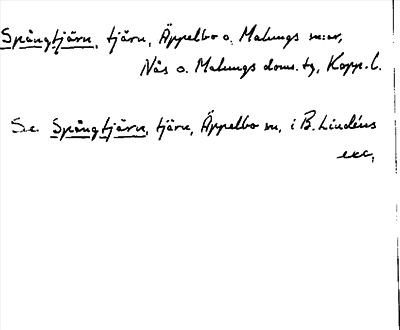 Spångtjärn, tjärn, Äppelbo o. Malungs snr,
Nås o. Malungs doms. tg, Kopp. l.
Se Spångtjärn, tjärn, Äppelbo sn, i B. Lindéns
exc.